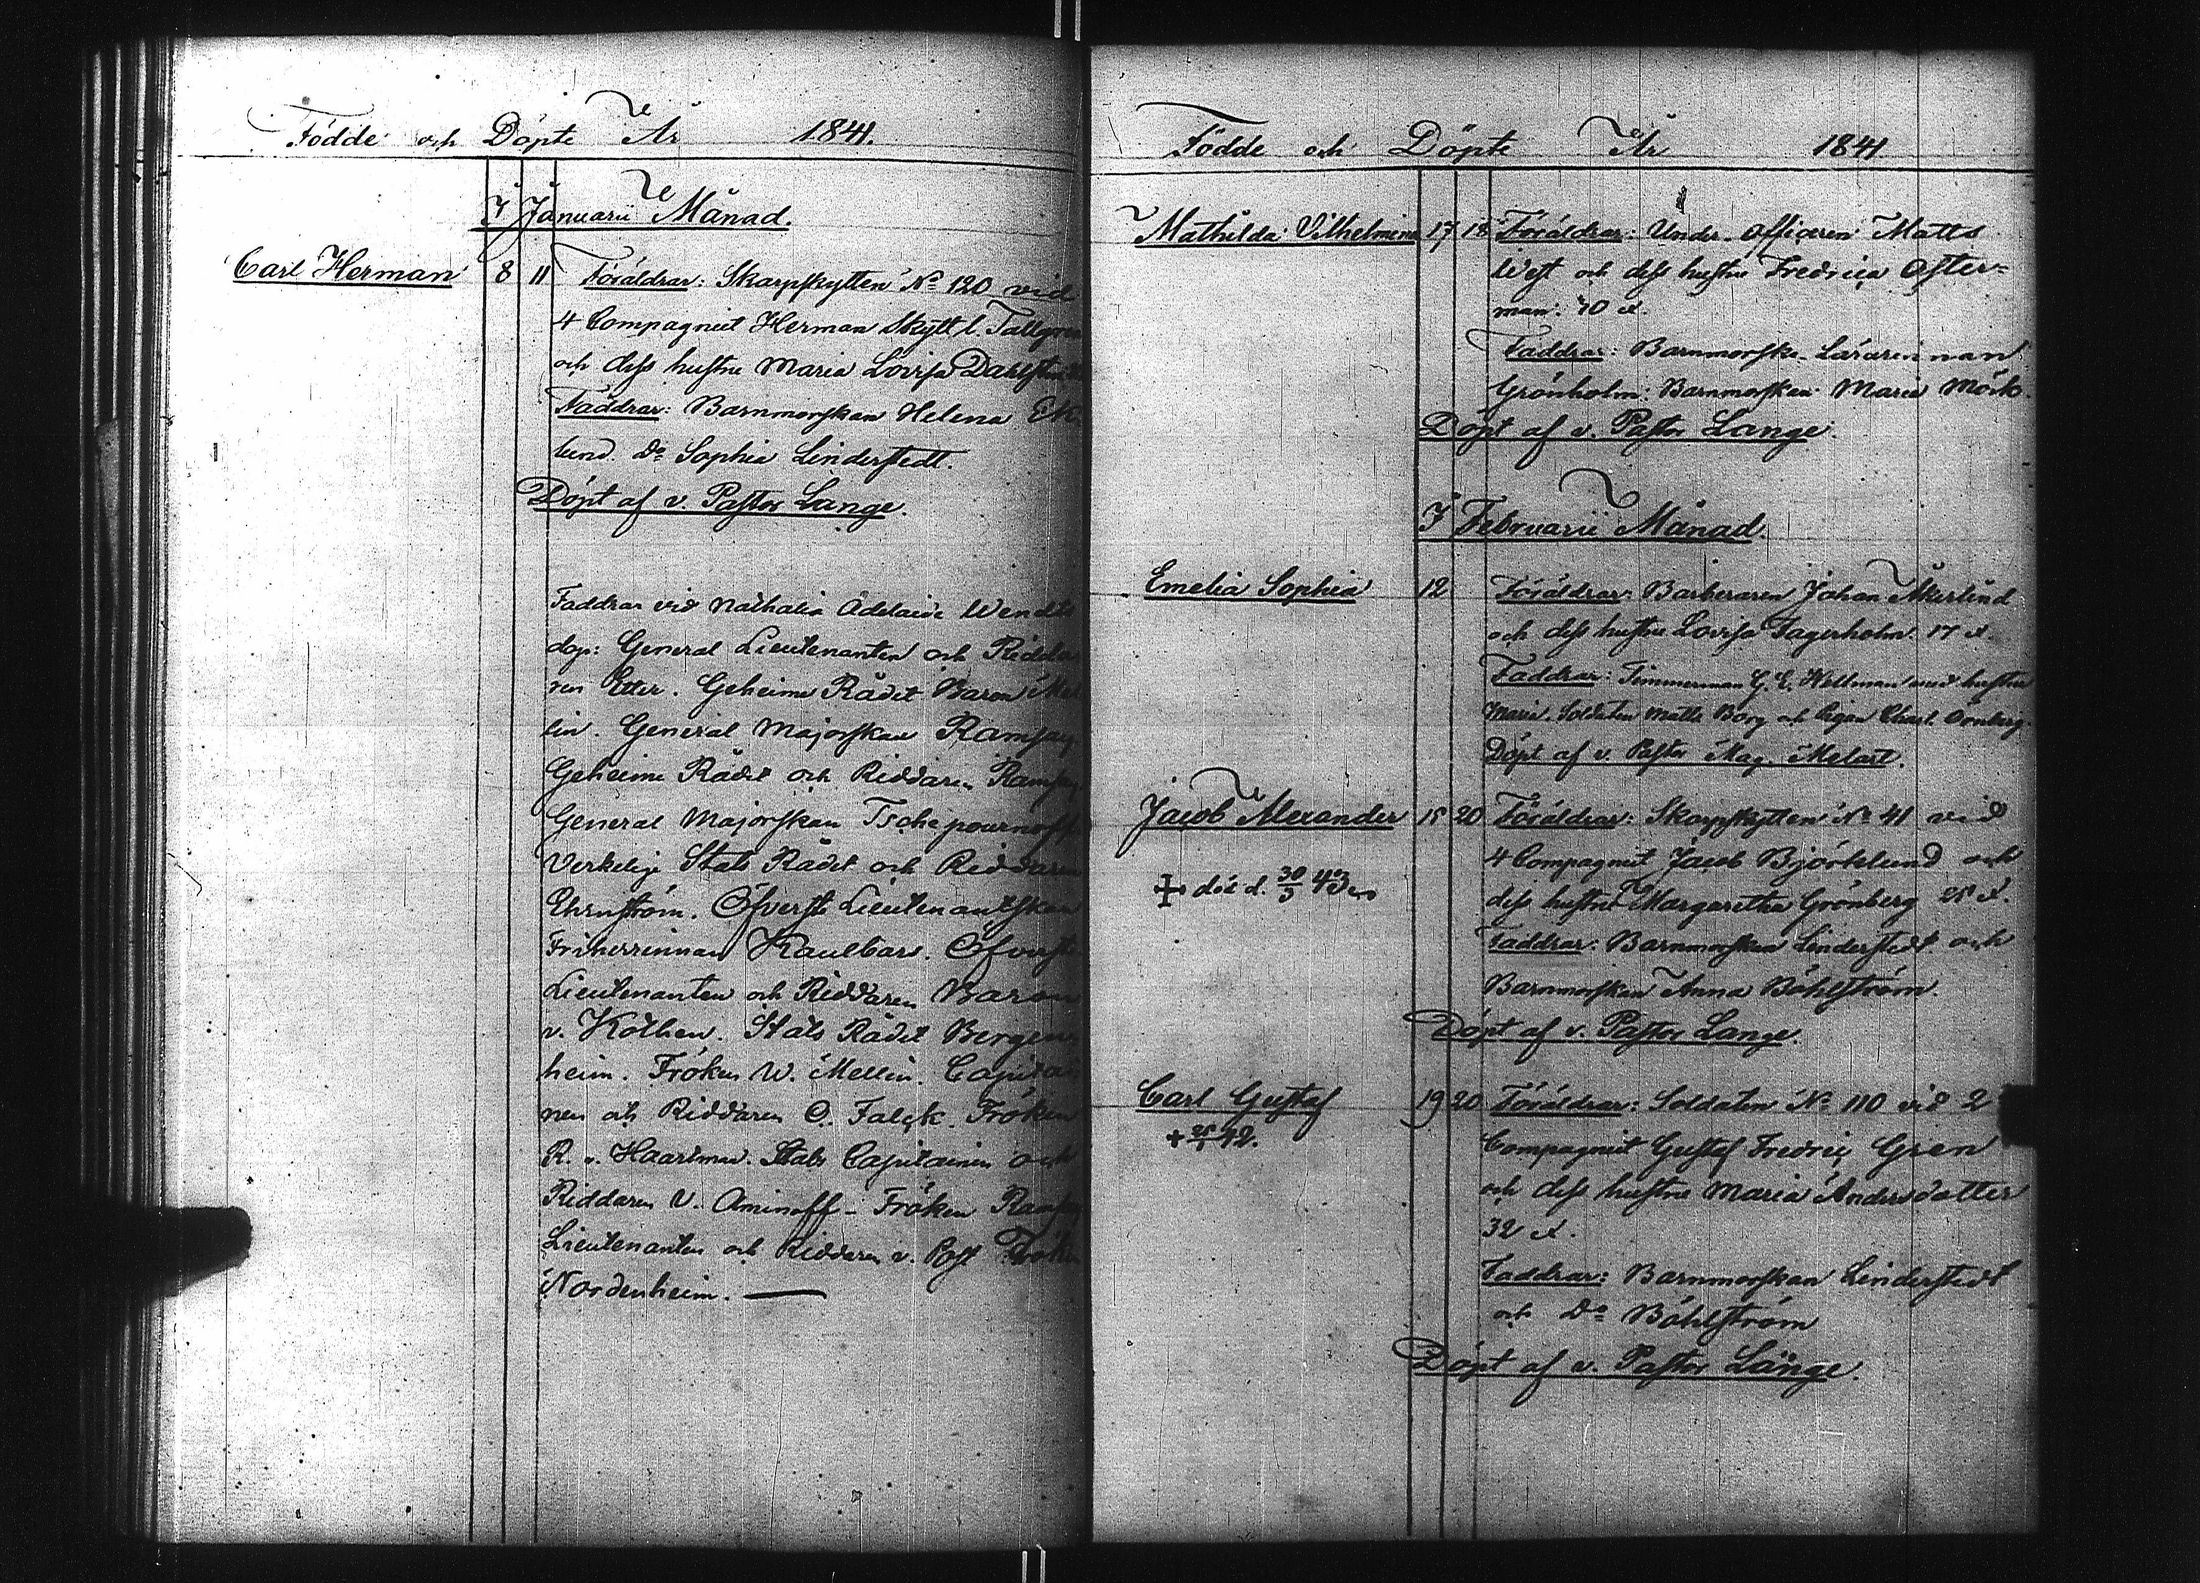 Födde och Döpte År 1841.
I Januarii Månad.
Carl Herman 8 11 Föräldrar: Skarpskytten No 120 vid
4 Compagniet Herman Skytt l. Tallgren
och dess hustru Maria Lovisa
Faddrar: Barnmorskan Helena Ek-
lund. Do Sophia Linderstedt.
Döpt af v. Pastor Lange.
Faddrar vid Nathalia Adelaide Wendts
dop: General Lieutenanten och Ridda-
ren Etter. Geheime Rådet Baron Mel-
lin. General Majorskan Ramsay
Geheime Rådet och Riddaren Ramsay
General Majorskan Tschepournoff
Verkelige Stats Rådet och Riddaren
Ehrnström. Öfverste Lieutenantskan
Friherrinnan Kaulbars. Öfverste
Lieutenanten och Riddaren Baron
v. Kothen. Stats Rådet Bergen-
heim. Fröken W. Mellin. Capitai-
nen och Riddaren O. Falck. Fröken
R. v. Haartman. Stabs Capitainen och
Riddaren V. Aminoff - Fröken Ramsay
Lieutenanten och Riddaren v. Post Fröken
Nordenheim.
Födde och Döpte År 1841
Mathilda Vilhelmina 17 18 Föräldrar: Under-officeren Matts
West och dess hustru Fredrica Öster-
man. 40 å.
Faddrar: Barnmorske-Lärarinnan
Grönholm: Barnmorskan Maria Mörk.
Döpt af v. Pastor Lange.
I Februarii Månad.
Emelia Sophia 12 Föräldrar: Barberaren Johan Åkerlind
och dess hustru Lovisa Fagerholm. 17 å.
Faddrar: Timmerman G. E. Wellman med hustru
Maria. Soldaten Matts Borg och Pigan Charl. Örnberg.
Döpt af v. Pastor Mag. Melart.
Jacob Alexander 15 20 Föräldrar: Skarpskytten No 41 vid
4 Compagniet Jacob Björklund och
dess hustru Margaretha Grönberg 25 å.
död d. 30/3 43
Faddrar: Barnmorskan Linderstedt och
Barnmorskan Anna Böhlström.
Döpt af v. Pastor Lange.
Carl Gustaf 19 20 Föräldrar: Soldaten No 110 vid 2
Compagniet Gustaf Fredric Gren
och dess hustru Maria Andersdotter
32 å.
Faddrar: Barnmorskan Linderstedt
och Do Böhlström
Döpt af v. Pastor Lange.